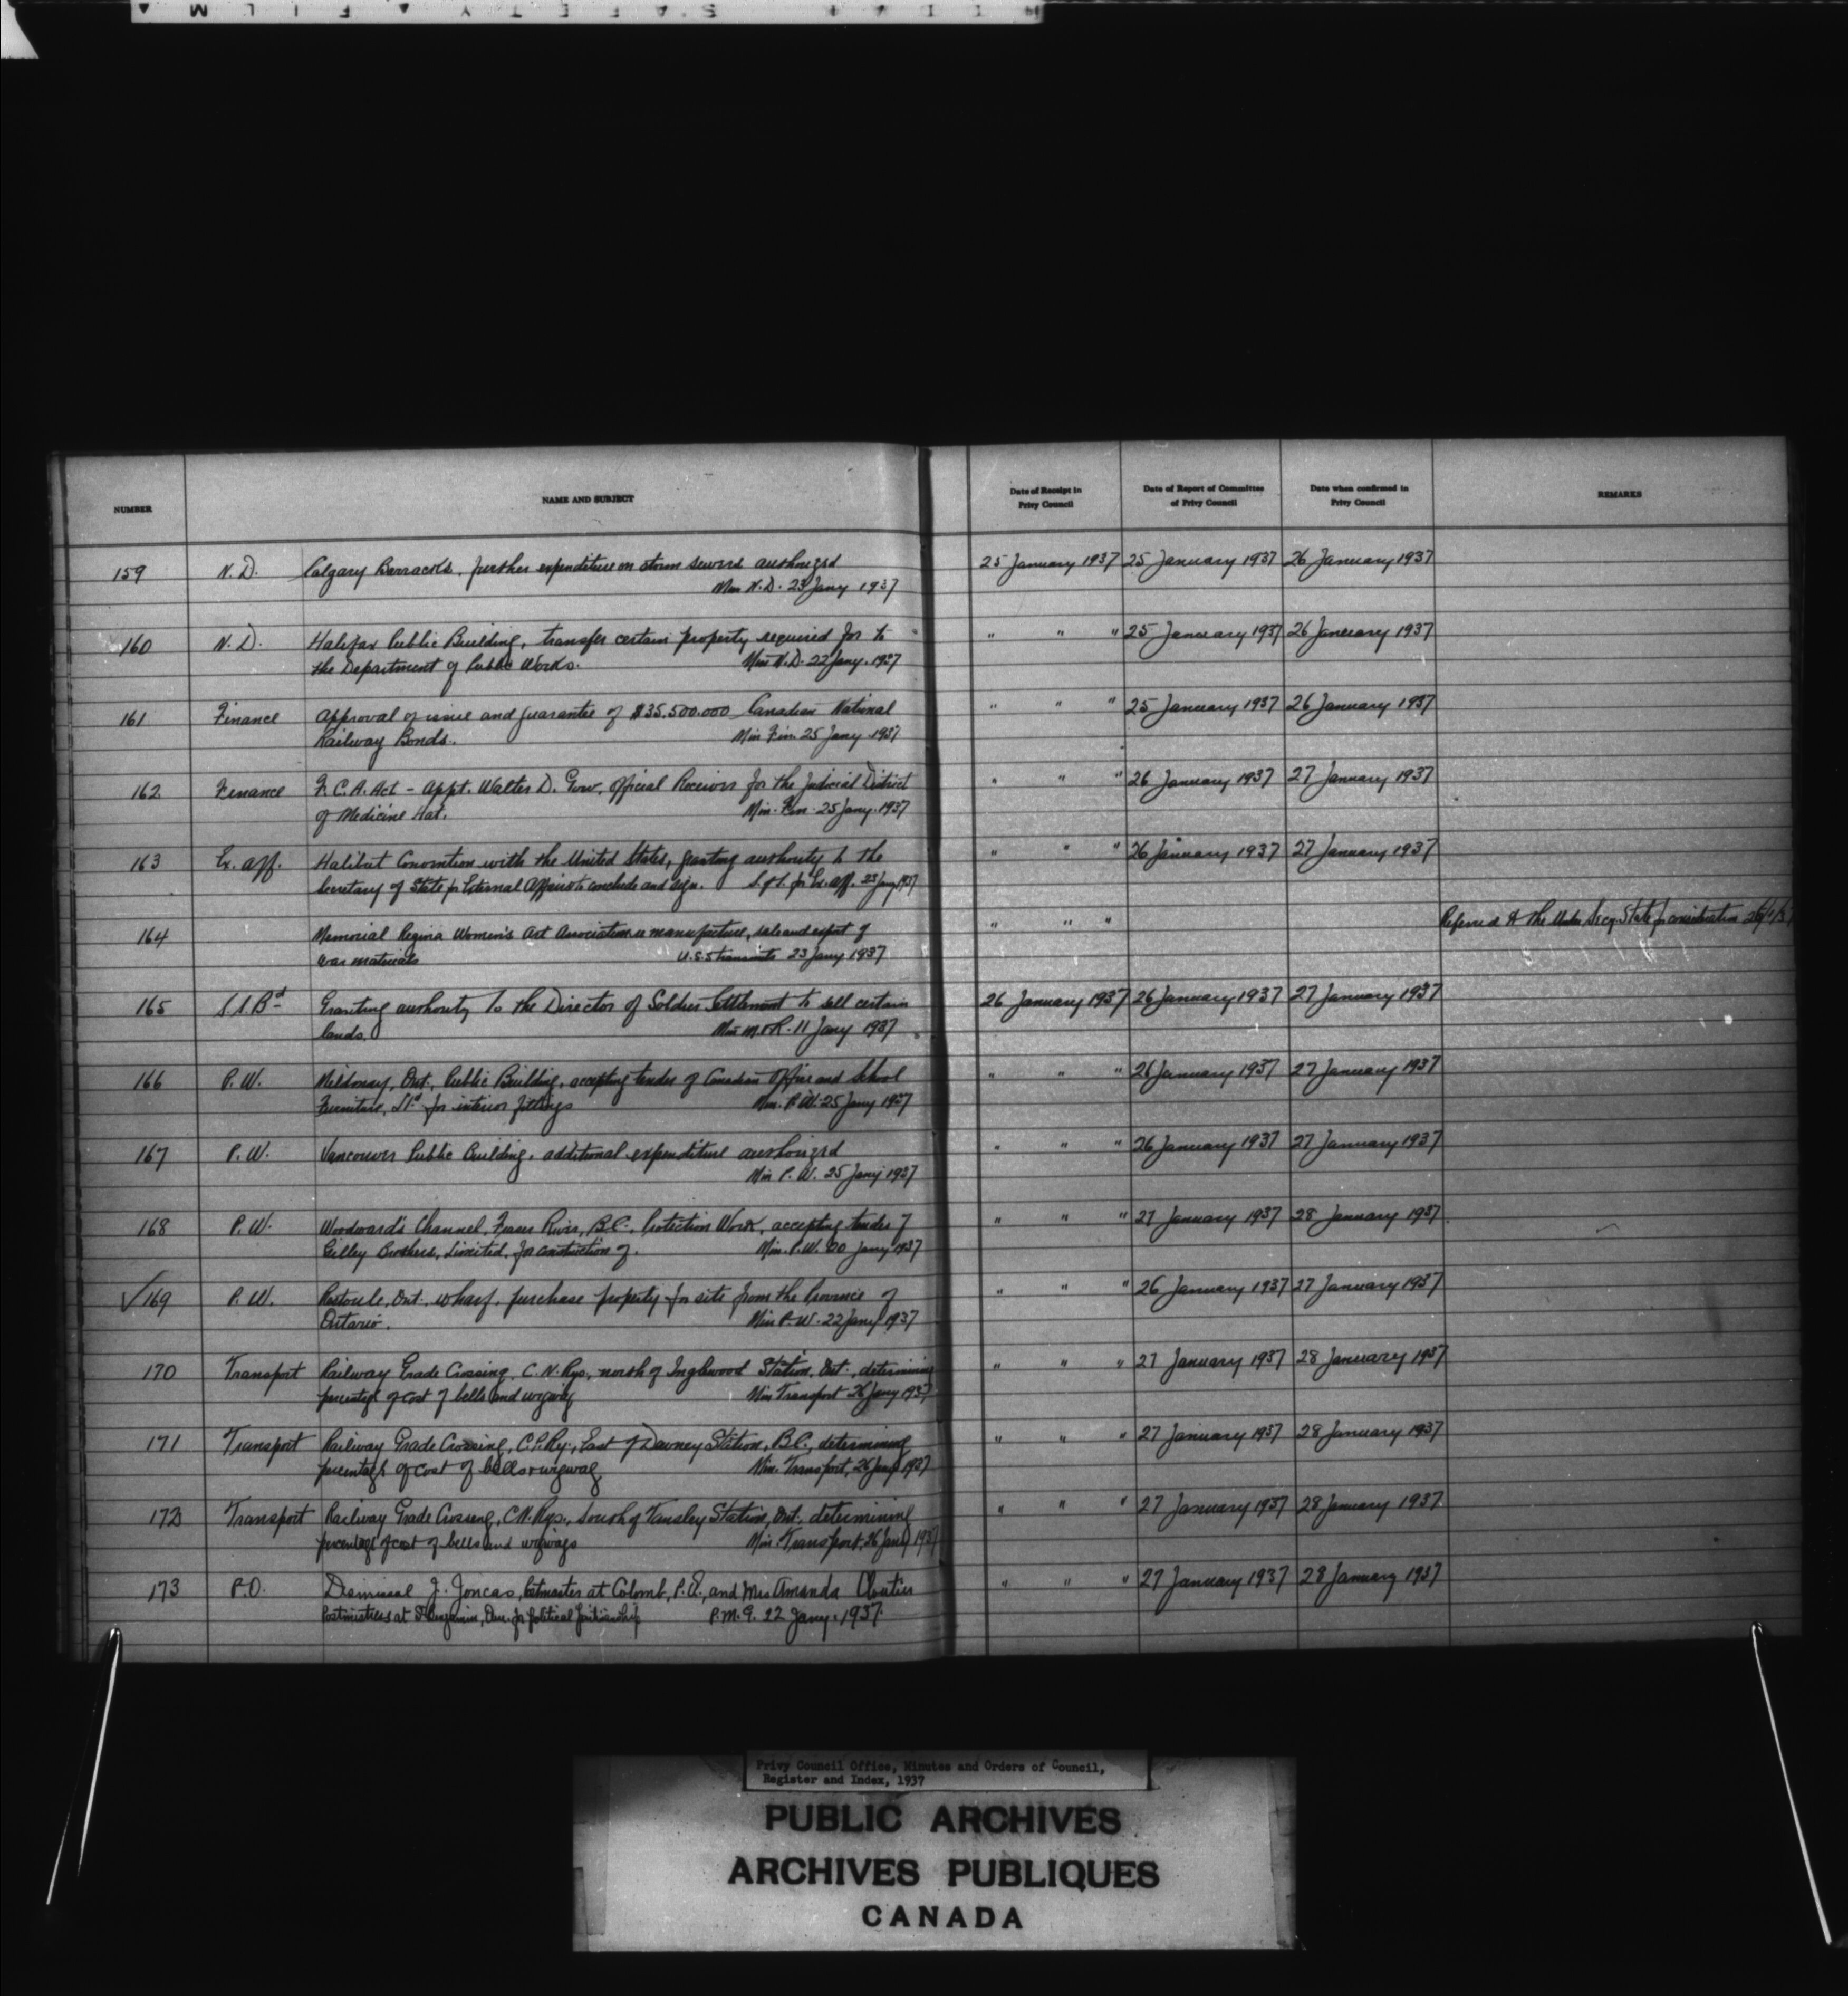 SAFETY FILM
NUMBER NAME AND SUBJECT Date of Receipt in Privy Council Date of Report of Committee of Privy Council Date when confirmed in Privy Council REMARKS
159 N.D. Calgary Barracks, further expenditure on storm sewers authorized 25 January 1937 25 January 1937 26 January 1937
Min N.D. 23 Jany 1937
160 N.D. Halifax Public Building, transfer certain property required for to " " " 25 January 1937 26 January 1937
the Department of Public Works. Min N.D. 22 Jany. 1937
161 Finance Approval of issue and guarantee of $35.500.000 Canadian National " " " 25 January 1937 26 January 1937
Railway Bonds. Min Fin. 25 Jany 1937
162 Finance F.C.A. Act - Appt. Walter D. Gow, Official Receiver for the Judicial District " " " 26 January 1937 27 January 1937
of Medicine Hat. Min. Fin. 25 Jany. 1937
163 Ex. Aff. Halibut Convention with the United States, granting authority to the " " " 26 January 1937 27 January 1937
Secretary of State for External Affairs to conclude and sign. S. of S. for Ex. Aff. 23 Jany 1937
164 Memorial Regina Women's Art Association re manufacture, sale and export of " " " Referred to the Under Secy. State for consideration 26/1/37
war materials U.S.S transmits 23 Jany 1937
165 S.S.Bd Granting authority to the Director of Soldier Settlement to sell certain 26 January 1937 26 January 1937 27 January 1937
lands. Min M.&R. 11 Jany 1937
166 P.W. Mildmay, Ont., Public Building, accepting tender of Canadian Office and School " " " 26 January 1937 27 January 1937
Furniture, Ltd for interior fittings Min. P.W. 25 Jany 1937
167 P.W. Vancouver Public Building, additional expenditure authorized " " " 26 January 1937 27 January 1937
Min P.W. 25 Jany 1937
168 P.W. Woodward's Channel, Fraser River, B.C., Protection Work, accepting tender of " " " 27 January 1937 28 January 1937
Gilley Brothers, Limited, for construction of. Min. P.W. 20 Jany 1937
✓169 P.W. Restoule, Ont. wharf, purchase property for site from the Province of " " " 26 January 1937 27 January 1937
Ontario. Min P.W. 22 Jany 1937
170 Transport Railway Grade Crossing, C.N.Rys, north of Inglewood Station, Ont., determining " " " 27 January 1937 28 January 1937
percentage of cost of bells and wigwag Min Transport 26 Jany 1937
171 Transport Railway Grade Crossing, C.P.Ry., East of Dewney Station, B.C., determining " " " 27 January 1937 28 January 1937
percentage of cost of bells & wigwag Min. Transport, 26 Jany 1937
172 Transport Railway Grade Crossing, C.N.Rys., South of Tansley Station, Ont. determining " " " 27 January 1937 28 January 1937
percentage of cost of bells and wigwags Min. Transport, 26 Jany 1937
173 P.O. Dismissal J. Joncas, Postmaster at Colomb, P.Q., and Mrs Amanda Cloutier " " " 27 January 1937 28 January 1937
Postmistress at St Benjamin, Que. for political partisanship P.M.G. 22 Jany. 1937
Privy Council Office, Minutes and Orders of Council,
Register and Index, 1937
PUBLIC ARCHIVES
ARCHIVES PUBLIQUES
CANADA